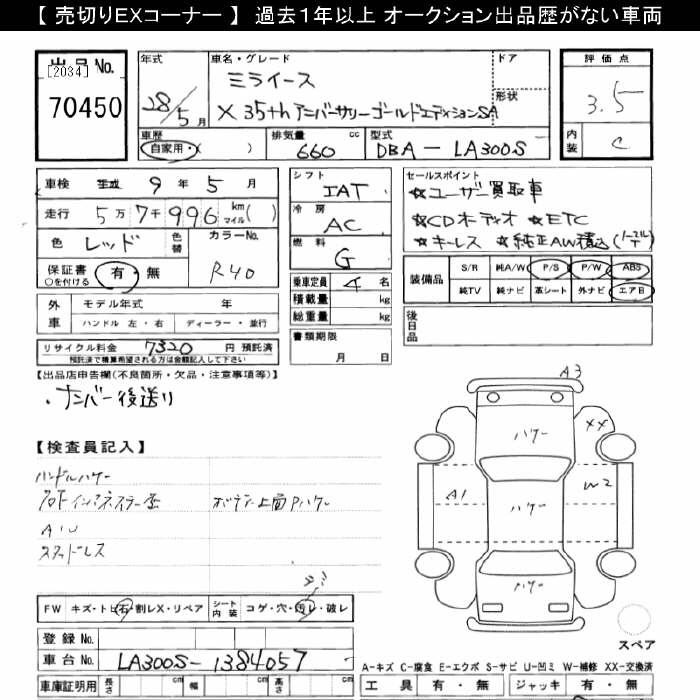 【 売切りEXコーナー 】 過去1年以上 オークション出品歴がない車両
出品No.
[2034]
70450
年式
28/5月
車名・グレード
ミライース
X 35th アニバーサリーゴールドエディションSA
ドア
形状
評価点
3.5
内装
C
車歴
自家用・( )
排気量 cc
660
型式
DBA - LA300S
車検 平成 9 年 5 月
走行 5万 7千 996 km マイル ( )
色 レッド 色替
カラーNo.
R40
保証書 有・無
○を付ける
外車 モデル年式 年
ハンドル 左・右 ディーラー・並行
リサイクル料金 7320 円 預託済
預託済で積算希望される方は金額記入して下さい
シフト
IAT
冷房
AC
燃料
G
乗車定員 4 名
積載量 kg
総重量 kg
書類期限
月 日
セールスポイント
☆ユーザー買取車
☆CDオーディオ ☆ETC
☆キーレス ☆純正AW積込(ノーマルT
装備品 S/R 純A/W P/S P/W ABS
純TV 純ナビ 革シート 外ナビ エアB
後日品
【出品店申告欄(不良箇所・欠品・注意事項等)】
・ナンバー後送り
【検査員記入】
ハンドルハゲ
ボディ上面Pハゲ
AW
スタッドレス
A3
XX
ハゲー
A1
ハゲー
W2
ハゲー
FW キズ・トビ石・割レX・リペア シート内装 コゲ・穴・汚レ・破レ
登録No.
車台No. LA300S-1384057
車庫証明用 長さ cm 幅 cm 高さ cm
スペア
A-キズ C-腐食 E-エクボ S-サビ U-凹ミ W-補修 XX-交換済
工具 有・無 ジャッキ 有・無